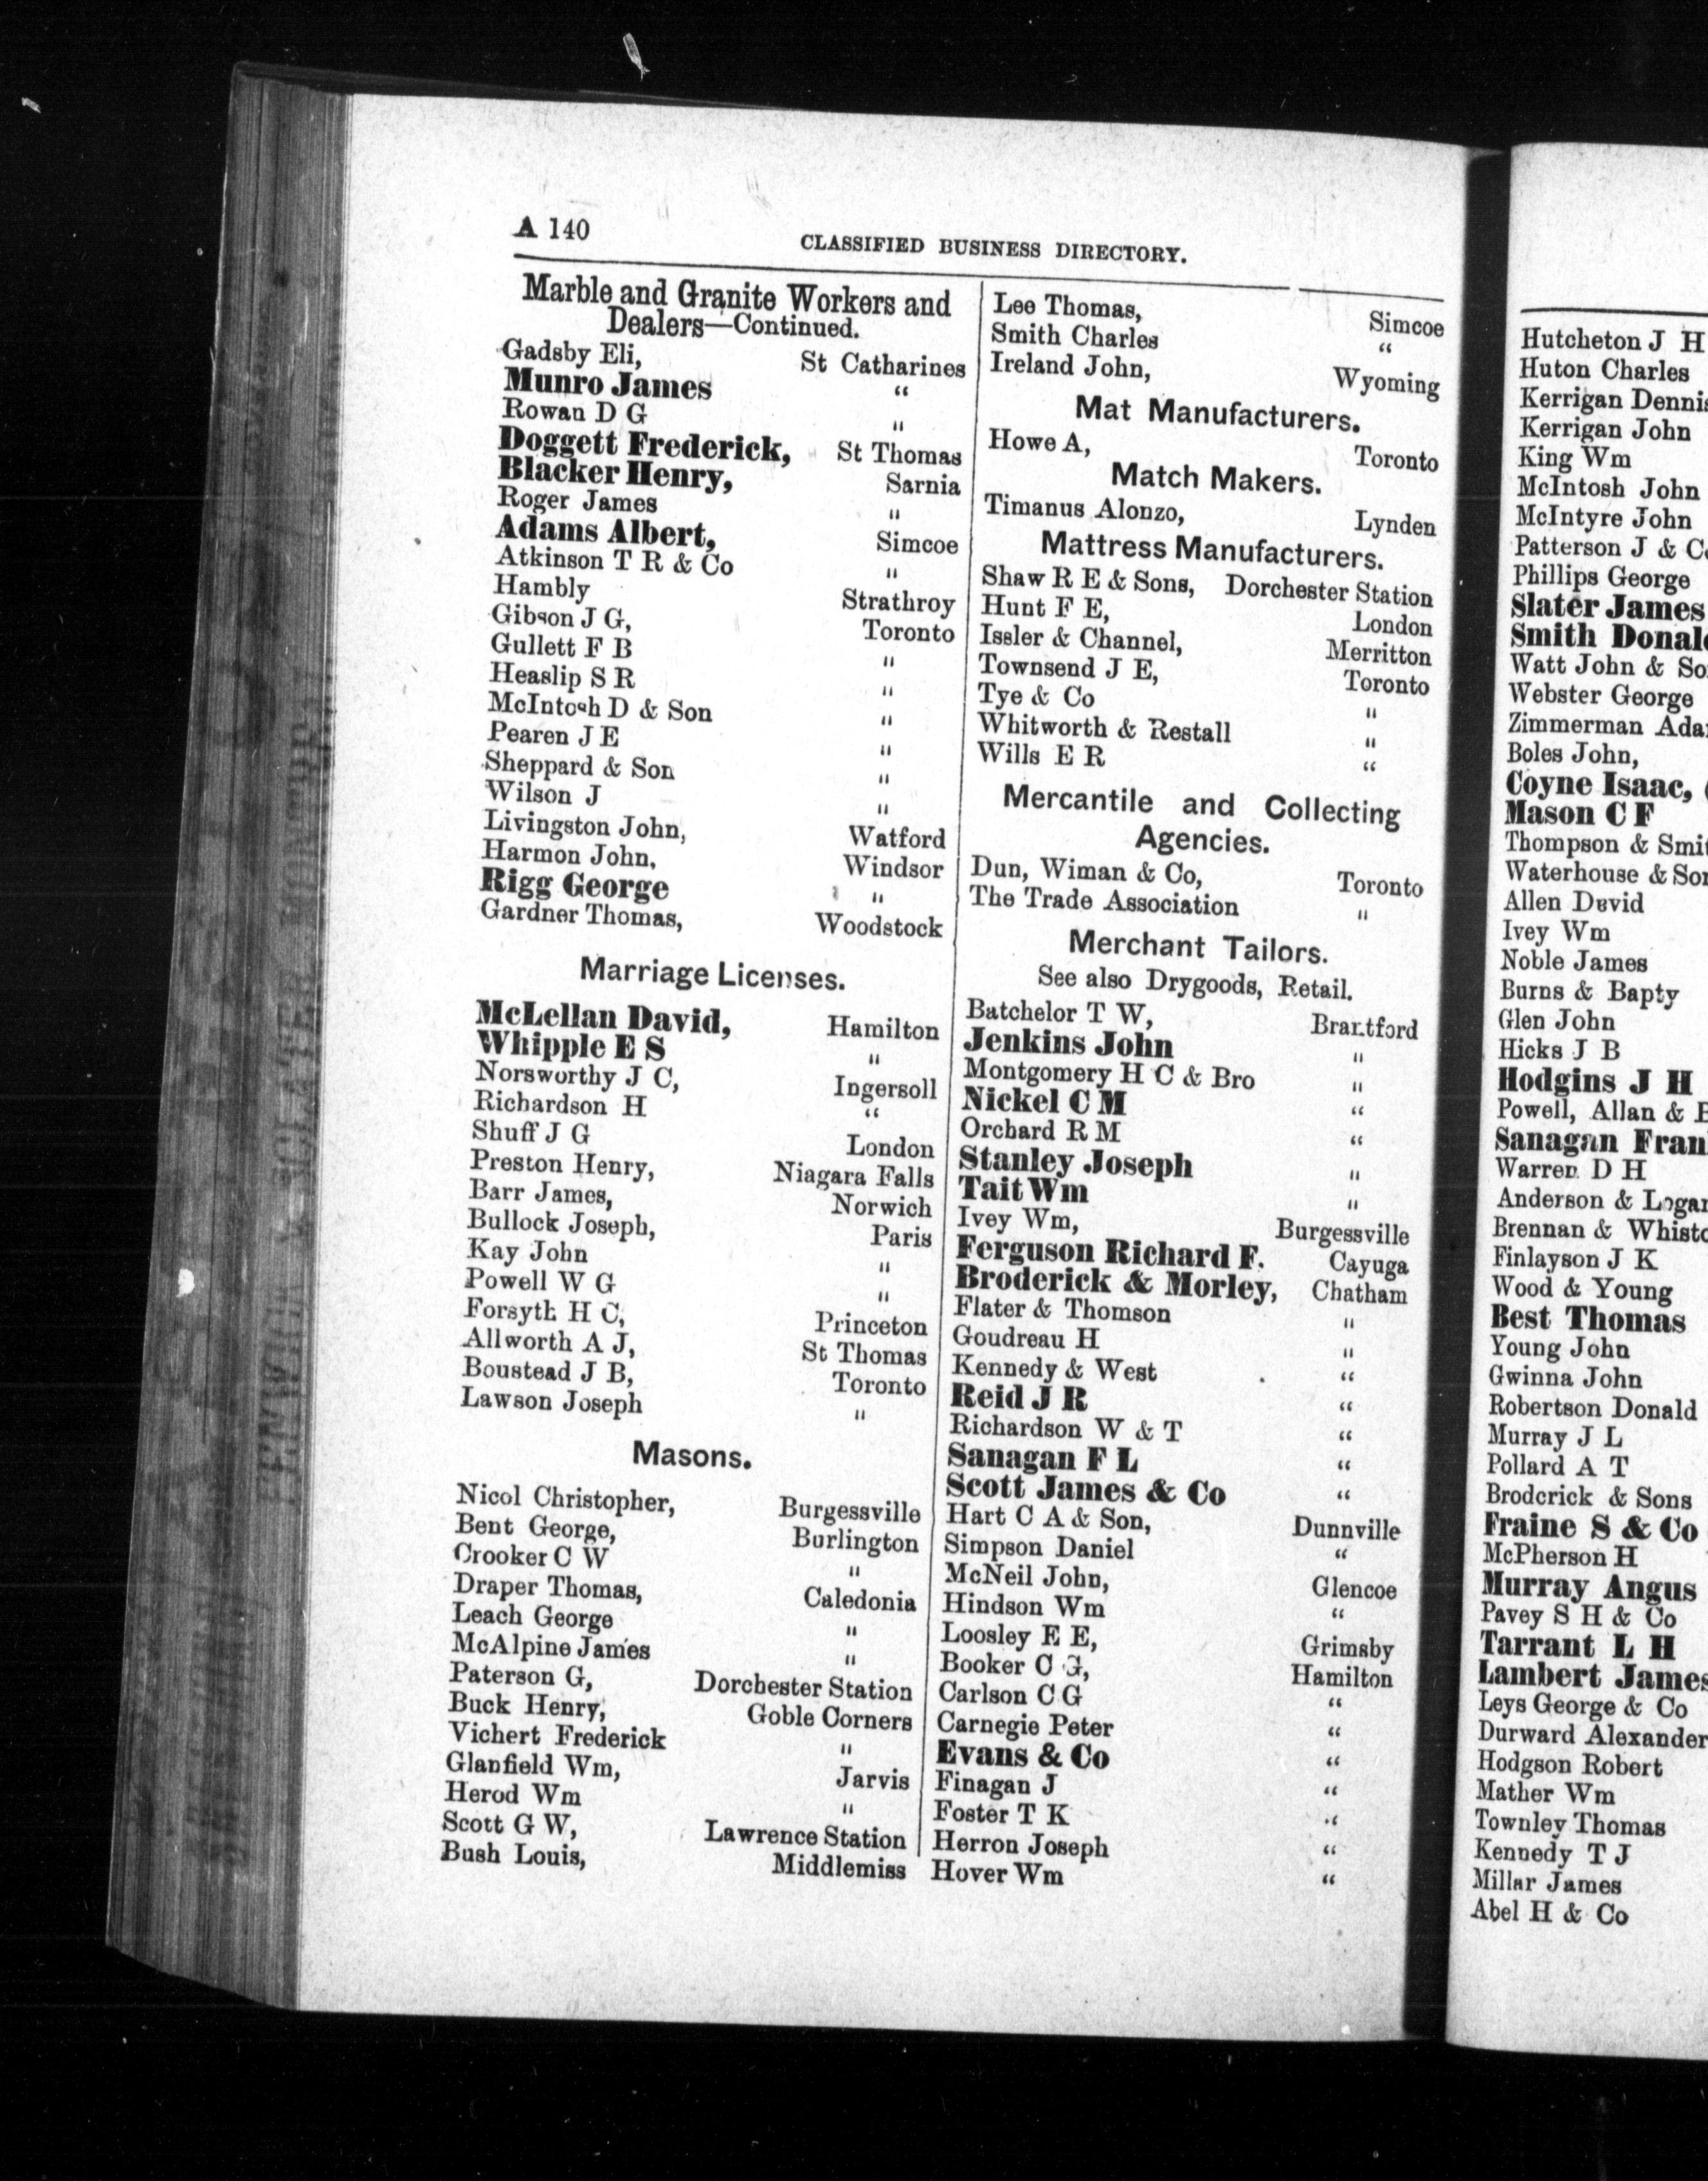 A 140
CLASSIFIED BUSINESS DIRECTORY.
Marble and Granite Workers and
Dealers—Continued.
Gadsby Eli, St Catharines
Munro James "
Rowan D G "
Doggett Frederick, St Thomas
Blacker Henry, Sarnia
Roger James "
Adams Albert, Simcoe
Atkinson T R & Co "
Hambly Strathroy
Gibson J G, Toronto
Gullett F B "
Heaslip S R "
McIntosh D & Son "
Pearen J E "
Sheppard & Son "
Wilson J "
Livingston John, Watford
Harmon John, Windsor
Rigg George "
Gardner Thomas, Woodstock
Marriage Licenses.
McLellan David, Hamilton
Whipple E S "
Norsworthy J C, Ingersoll
Richardson H "
Shuff J G London
Preston Henry, Niagara Falls
Barr James, Norwich
Bullock Joseph, Paris
Kay John "
Powell W G "
Forsyth H C, Princeton
Allworth A J, St Thomas
Boustead J B, Toronto
Lawson Joseph "
Masons.
Nicol Christopher, Burgessville
Bent George, Burlington
Crooker C W "
Draper Thomas, Caledonia
Leach George "
McAlpine James "
Paterson G, Dorchester Station
Buck Henry, Goble Corners
Vichert Frederick "
Glanfield Wm, Jarvis
Herod Wm "
Scott G W, Lawrence Station
Bush Louis, Middlemiss
Lee Thomas, Simcoe
Smith Charles "
Ireland John, Wyoming
Mat Manufacturers.
Howe A, Toronto
Match Makers.
Timanus Alonzo, Lynden
Mattress Manufacturers.
Shaw R E & Sons, Dorchester Station
Hunt F E, London
Issler & Channel, Merritton
Townsend J E, Toronto
Tye & Co "
Whitworth & Restall "
Wills E R "
Mercantile and Collecting
Agencies.
Dun, Wiman & Co, Toronto
The Trade Association "
Merchant Tailors.
See also Drygoods, Retail.
Batchelor T W, Brantford
Jenkins John "
Montgomery H C & Bro "
Nickel C M "
Orchard R M "
Stanley Joseph "
Tait Wm "
Ivey Wm, Burgessville
Ferguson Richard F. Cayuga
Broderick & Morley, Chatham
Flater & Thomson "
Goudreau H "
Kennedy & West "
Reid J R "
Richardson W & T "
Sanagan F L "
Scott James & Co "
Hart C A & Son, Dunnville
Simpson Daniel "
McNeil John, Glencoe
Hindson Wm "
Loosley E E, Grimsby
Booker C G, Hamilton
Carlson C G "
Carnegie Peter "
Evans & Co "
Finagan J "
Foster T K "
Herron Joseph "
Hover Wm "
Hutcheton J H
Huton Charles
Kerrigan Dennis
Kerrigan John
King Wm
McIntosh John
McIntyre John
Patterson J & C
Phillips George
Slater James
Smith Donal
Watt John & So
Webster George
Zimmerman Ada
Boles John,
Coyne Isaac,
Mason C F
Thompson & Smi
Waterhouse & So
Allen David
Ivey Wm
Noble James
Burns & Bapty
Glen John
Hicks J B
Hodgins J H
Powell, Allan &
Sanagan Fran
Warren D H
Anderson & Logan
Brennan & Whist
Finlayson J K
Wood & Young
Best Thomas
Young John
Gwinna John
Robertson Donald
Murray J L
Pollard A T
Broderick & Sons
Fraine S & Co
McPherson H
Murray Angus
Pavey S H & Co
Tarrant L H
Lambert James
Leys George & Co
Durward Alexander
Hodgson Robert
Mather Wm
Townley Thomas
Kennedy T J
Millar James
Abel H & Co